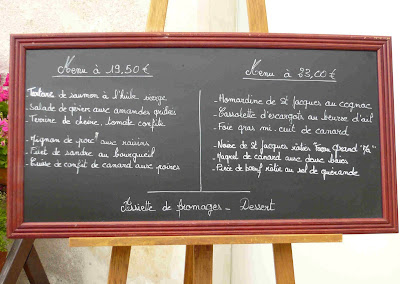 Menu à 19,50 €
de saumon à l'huile vierge
- Salade de gésiers aux amandes grillées
- Terrine de chèvre, tomate confite
- Mignon de porc aux raisins
- Filet de sandre au bourgueil
- Cuisse de confit de canard aux poires
Menu à 23,00 €
- de St Jacques au cognac
- Cassolette d'escargots au beurre d'ail
- Foie gras mi-cuit de canard
- de St Jacques
- Magret de canard aux
- Pièce de bœuf rôtie au sel de guérande
Assiette de fromages - Dessert